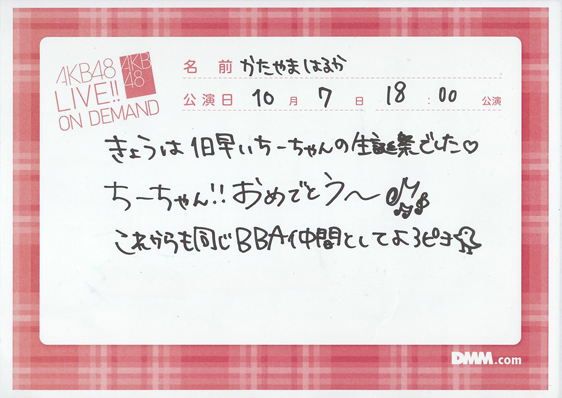 AKB48
LIVE!!
ON DEMAND
AKB
48
名 前 かたやまはるか
公演日 10 月 7 日 18 : 00 公演
きょうは1日早いちーちゃんの生誕祭でした♡
ちーちゃん!!おめでとう〜
これからも同じBBA仲間としてよろピヨ
DMM.com